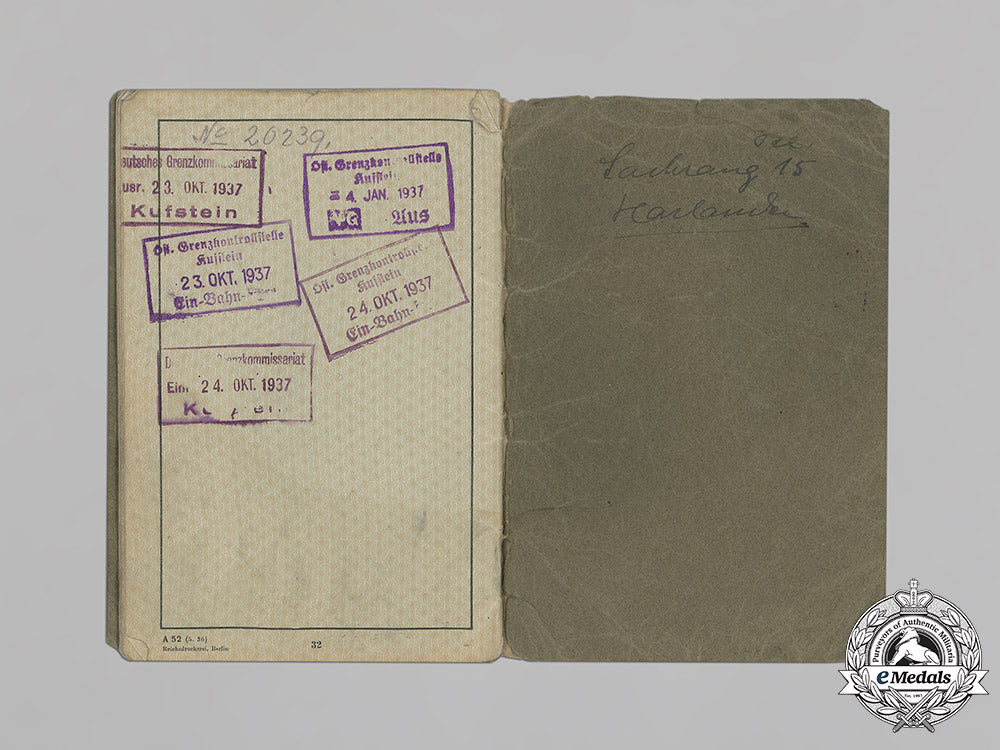 № 20239.
eutsches Grenzkommissariat
usr. 23. OKT. 1937
Kufstein
Öst. Grenzkontrollstelle
Kufstein
= 4. JAN. 1937
VG Aus
Öst. Grenzkontrollstelle
Kufstein
23. OKT. 1937
Ein-Bahn-
Öst. Grenzkontrolls
Kufstein
24. OKT. 1937
Ein-Bahn-
D Grenzkommissariat
Ein 24. OKT. 1937
A 52 (5. 36)
Reichsdruckerei, Berlin
32
Sachrang 15
Purveyors of Authentic Militaria
eMedals